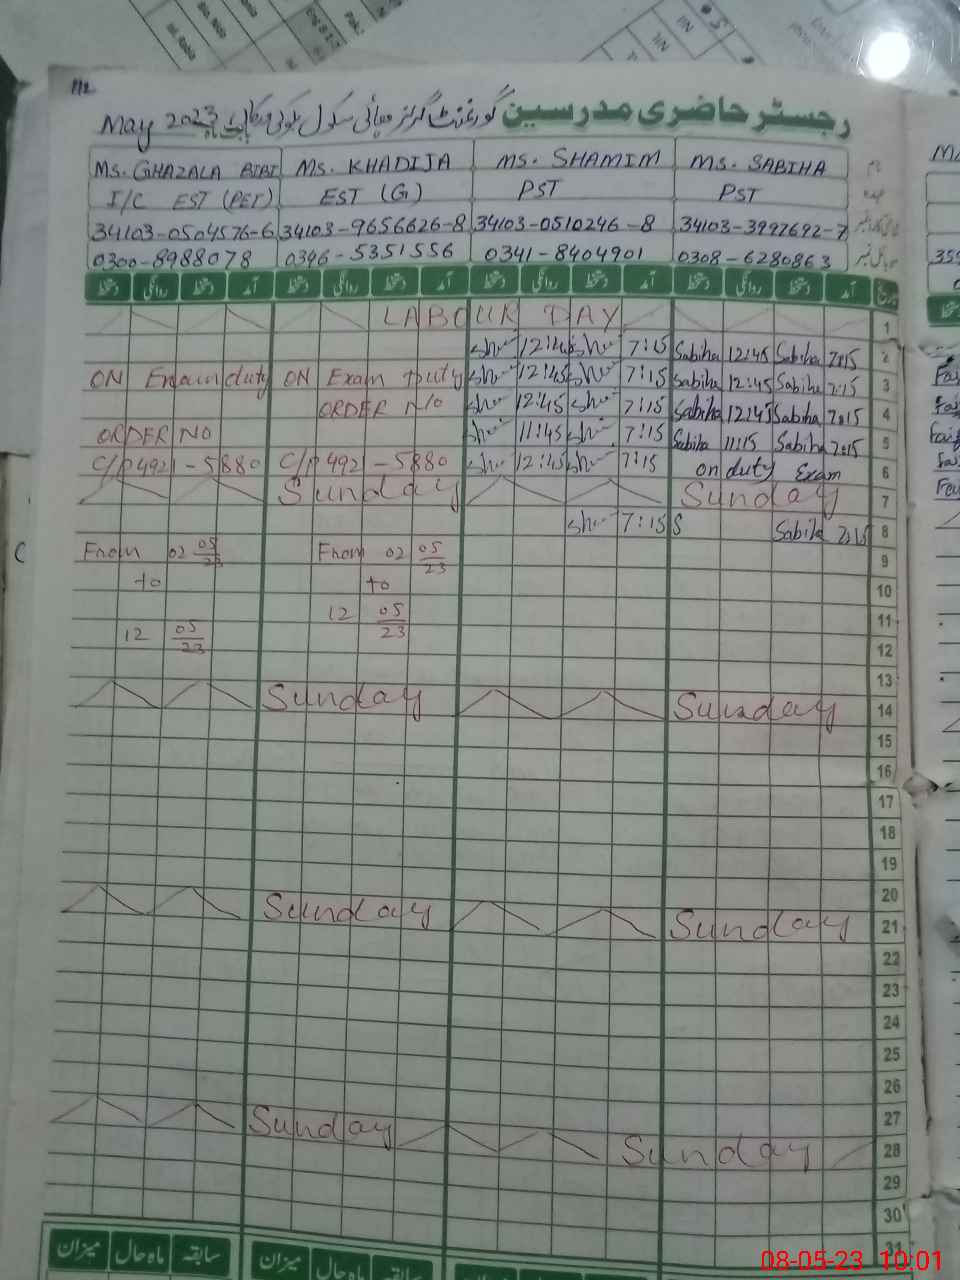 112
رجسٹر حاضری مدرسین گورنمنٹ گرلز ہائی سکول May 2023
Ms. GHAZALA BIBI Ms. KHADIJA Ms. SHAMIM Ms. SABIHA نام
I/C EST (PET) EST (G) PST PST عہدہ
34103-0504576-6 34103-9656626-8 34103-0510246-8 34103-3997692-7
0300-8988078 0346-5351556 0341-8404901 0308-6280863 موبائل نمبر
دستخط روانگی دستخط آمد دستخط روانگی دستخط آمد دستخط روانگی دستخط آمد دستخط روانگی دستخط آمد تاریخ
LABOUR DAY 1
12:45 7:15 Sabiha 12:45 Sabiha 7:15 2
ON Exam duty ON Exam Duty 12:45 7:15 Sabiha 12:45 Sabiha 7:15 3
ORDER NO 12:45 7:15 Sabiha 12:45 Sabiha 7:15 4
ORDER NO 11:45 7:15 Sabiha 11:15 Sabiha 7:15 5
C/P 492 - 5880 C/P 492 - 5880 12:45 7:15 on duty Exam 6
Sunday Sunday 7
7:15 S Sabiha 7:15 8
From 02 05/23 From 02 05/23 9
to to 10
12 05/23 11
12 05/23 12
13
Sunday Sunday 14
15
16
17
18
19
20
Sunday Sunday 21
22
23
24
25
26
Sunday 27
Sunday 28
29
30
31
میزان ماہ حال سابقہ میزان ماہ حال سابقہ میزان ماہ حال
08-05-23 10:01